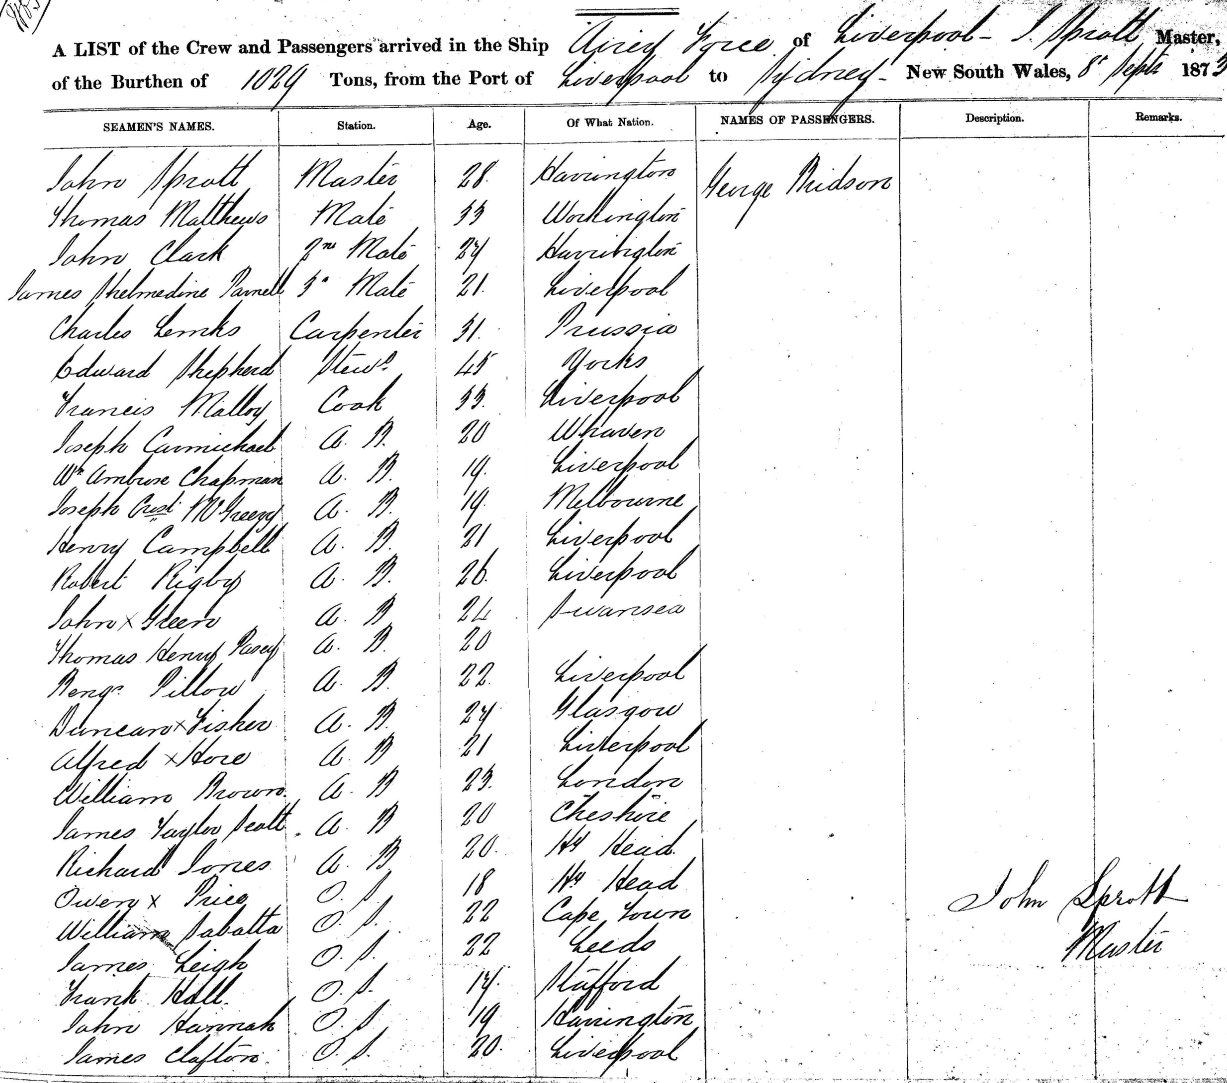 A LIST of the Crew and Passengers arrived in the Ship Airey Force of Liverpool - J. Sprott Master,
of the Burthen of 1029 Tons, from the Port of Liverpool to Sydney - New South Wales, 8th Septr 1873
SEAMEN'S NAMES. Station. Age. Of What Nation. NAMES OF PASSENGERS. Description. Remarks.
John Sprott Master 28 Harrington George Bridson
Thomas Matthews Mate 33 Workington
John Clark 2nd Mate 24 Harrington
James Shelmedine Parnell 3d Mate 21 Liverpool
Charles Lemks Carpenter 31 Prussia
Edward Shepherd Stewd 45 Yorks
Francis Malloy Cook 33 Liverpool
Joseph Carmichael A. B. 20 Whaven
Wm Ambrose Chapman A. B. 19 Liverpool
Joseph McGreevy A. B. 19 Melbourne
Henry Campbell A. B. 21 Liverpool
Robert Rigby A. B. 26 Liverpool
John x Green A. B 24 Swansea
Thomas Henry Pasey A. B. 20
Benjn Pillow A. B. 22 Liverpool
Duncan x Fisher A. B. 24 Glasgow
Alfred x Hore A. B 21 Liverpool
William Brown A. B 23 London
James Taylor Scott A. B 20 Cheshire
Richard Jones A. B 20 Hy Head
Owen x Price O. S. 18 Hy Head John Sprott
William Sabatta O. S. 22 Cape Town Master
James Leigh O. S. 22 Leeds
Frank Hall. O. S. 17 Stafford
John Hannah O. S. 19 Harrington
James Clafton O. S. 20 Liverpool